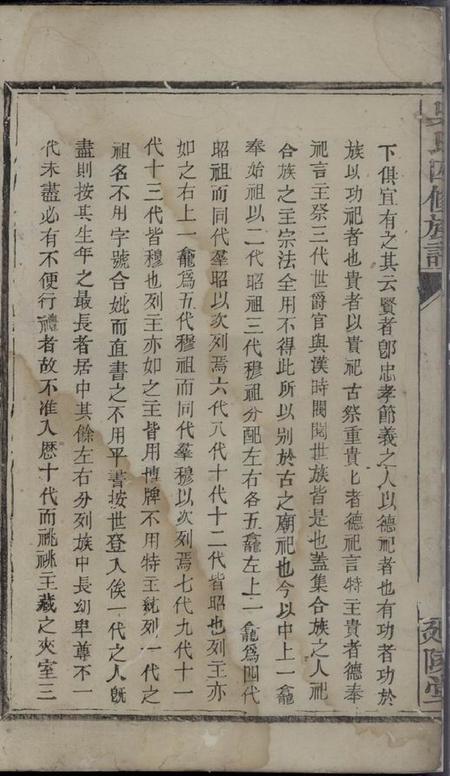 下俱宜有之其云賢者卽忠孝節義之人以德祀者也有功者功於
族以功祀者也貴者以貴祀古祭重貴上者德祀言特主貴者德奉
祀言主祭三代世爵官與漢時閥閱世族皆是也蓋集合族之人祀
合族之主宗法全用不得此所以别於古之廟祀也今以中上一龕
奉始祖以二代昭祖三代穆祖分配左右各五龕左上一龕爲四代
昭祖而同代羣昭以次列焉六代八代十代十二代皆昭也列主亦
如之右上一龕爲五代穆祖而同代羣穆以次列焉七代九代十一
代十三代皆穆也列主亦如之主皆用博牌不用特主統列一代之
祖名不用字號合妣而直書之不用平書按世登入俟一代之人旣
盡則按其生年之最長者居中其餘左右分列族中長幼卑尊不一
代未盡必有不便行禮者故不准入歷十代而祧祧主藏之夾室三
吳氏四修族譜
延陵堂